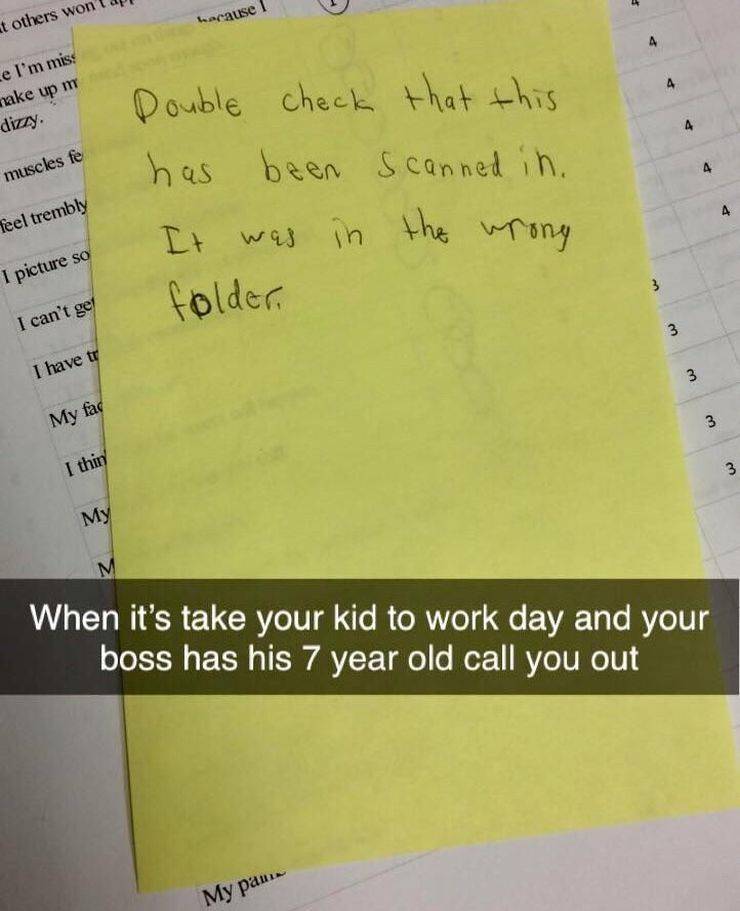 t others won't
because I
e I'm miss
make up m
dizzy.
muscles fe
feel trembly
I picture so
I can't get
I have tr
My fac
I thin
My
M
4
4
4
4
4
3
3
3
3
3
Double check that this
has been scanned in.
It was in the wrong
folder.
When it's take your kid to work day and your
boss has his 7 year old call you out
My